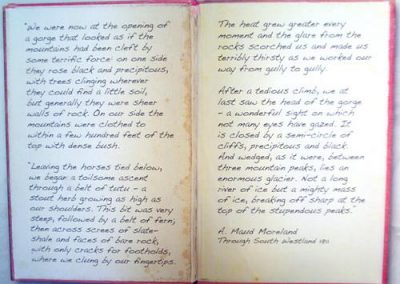 "We were now at the opening of
a gorge that looked as if the
mountains had been cleft by
some terrific force: on one side
they rose black and precipitous,
with trees clinging wherever
they could find a little soil,
but generally they were sheer
walls of rock. On our side the
mountains were clothed to
within a few hundred feet of the
top with dense bush.
"Leaving the horses tied below,
we began a toilsome ascent
through a belt of tutu - a
stout herb growing as high as
our shoulders. This bit was very
steep, followed by a belt of fern;
then across screes of slate-
shale and faces of bare rock,
with only cracks for footholds,
where we clung by our fingertips.
The heat grew greater every
moment and the glare from the
rocks scorched us and made us
terribly thirsty as we worked our
way from gully to gully.
After a tedious climb, we at
last saw the head of the gorge
- a wonderful sight on which
not many eyes have gazed. It
is closed by a semi-circle of
cliffs, precipitous and black.
And wedged, as it were, between
three mountain peaks, lies an
enormous glacier. Not a long
river of ice but a mighty mass
of ice, breaking off sharp at the
top of the stupendous peaks."
A. Maud Moreland
Through South Westland 1911